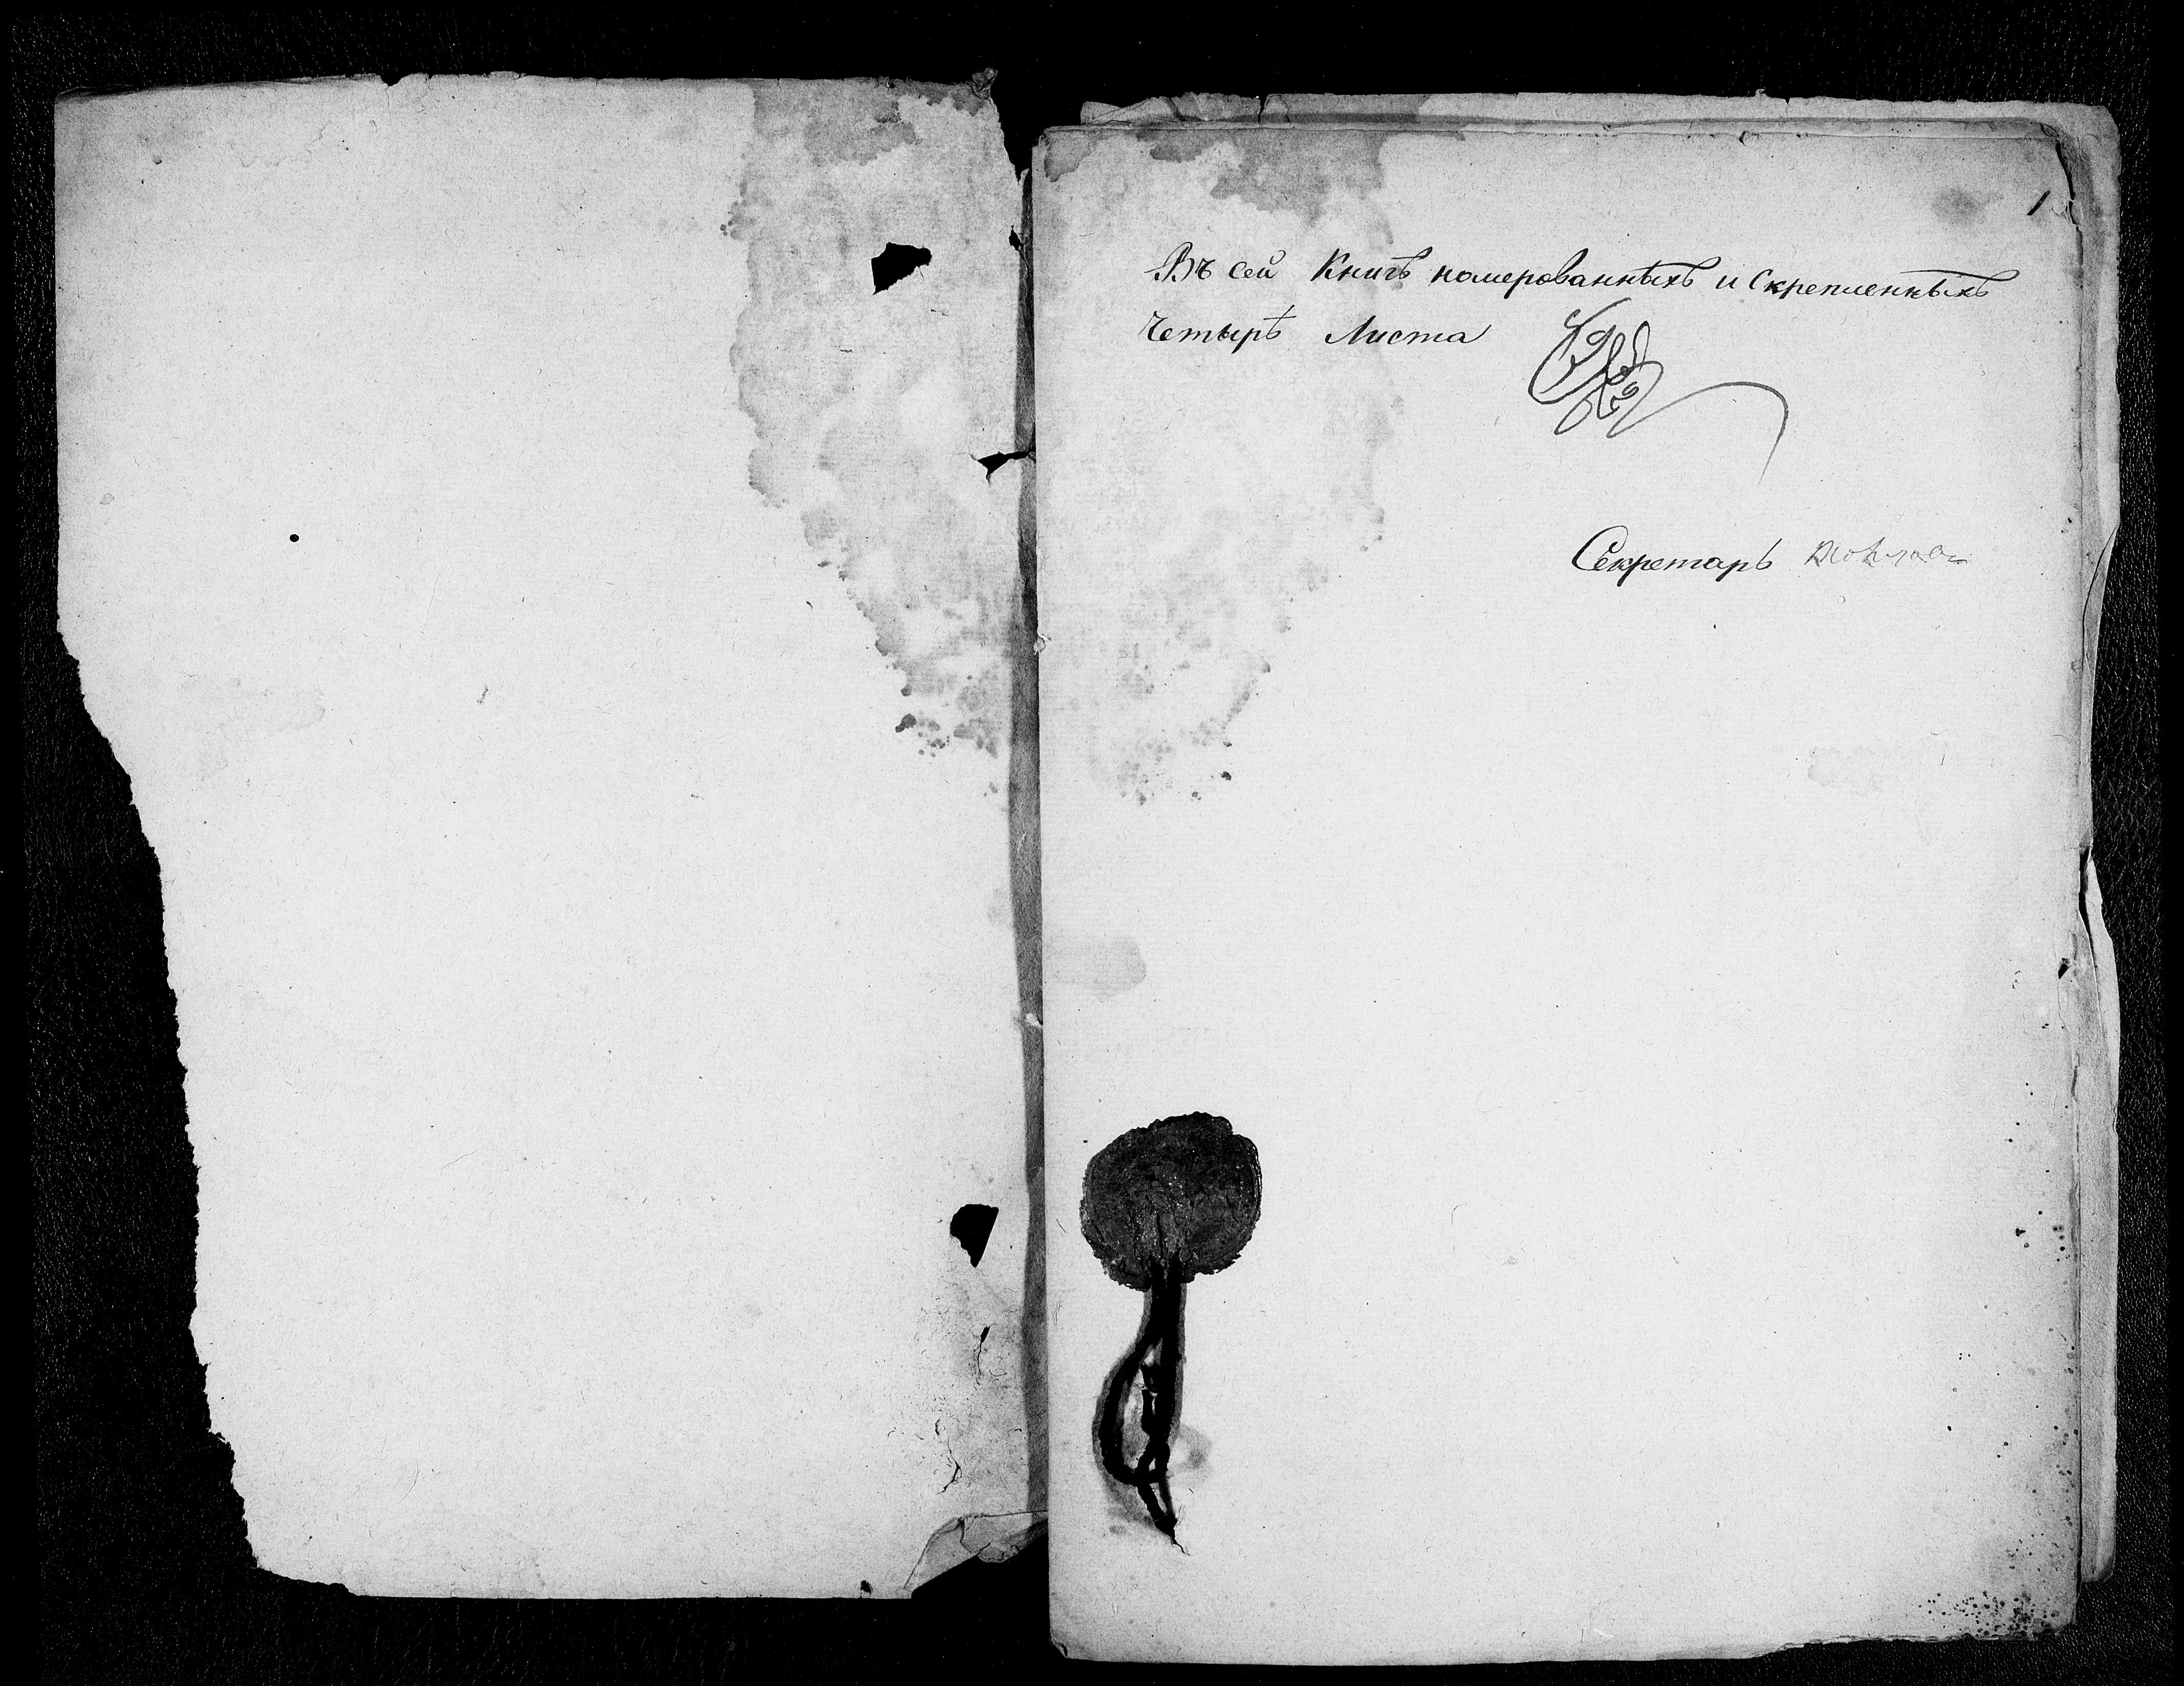 1
Въ сей Книгѣ номерованныхъ и Скрепленныхъ
Четырѣ Листа
Секретарь